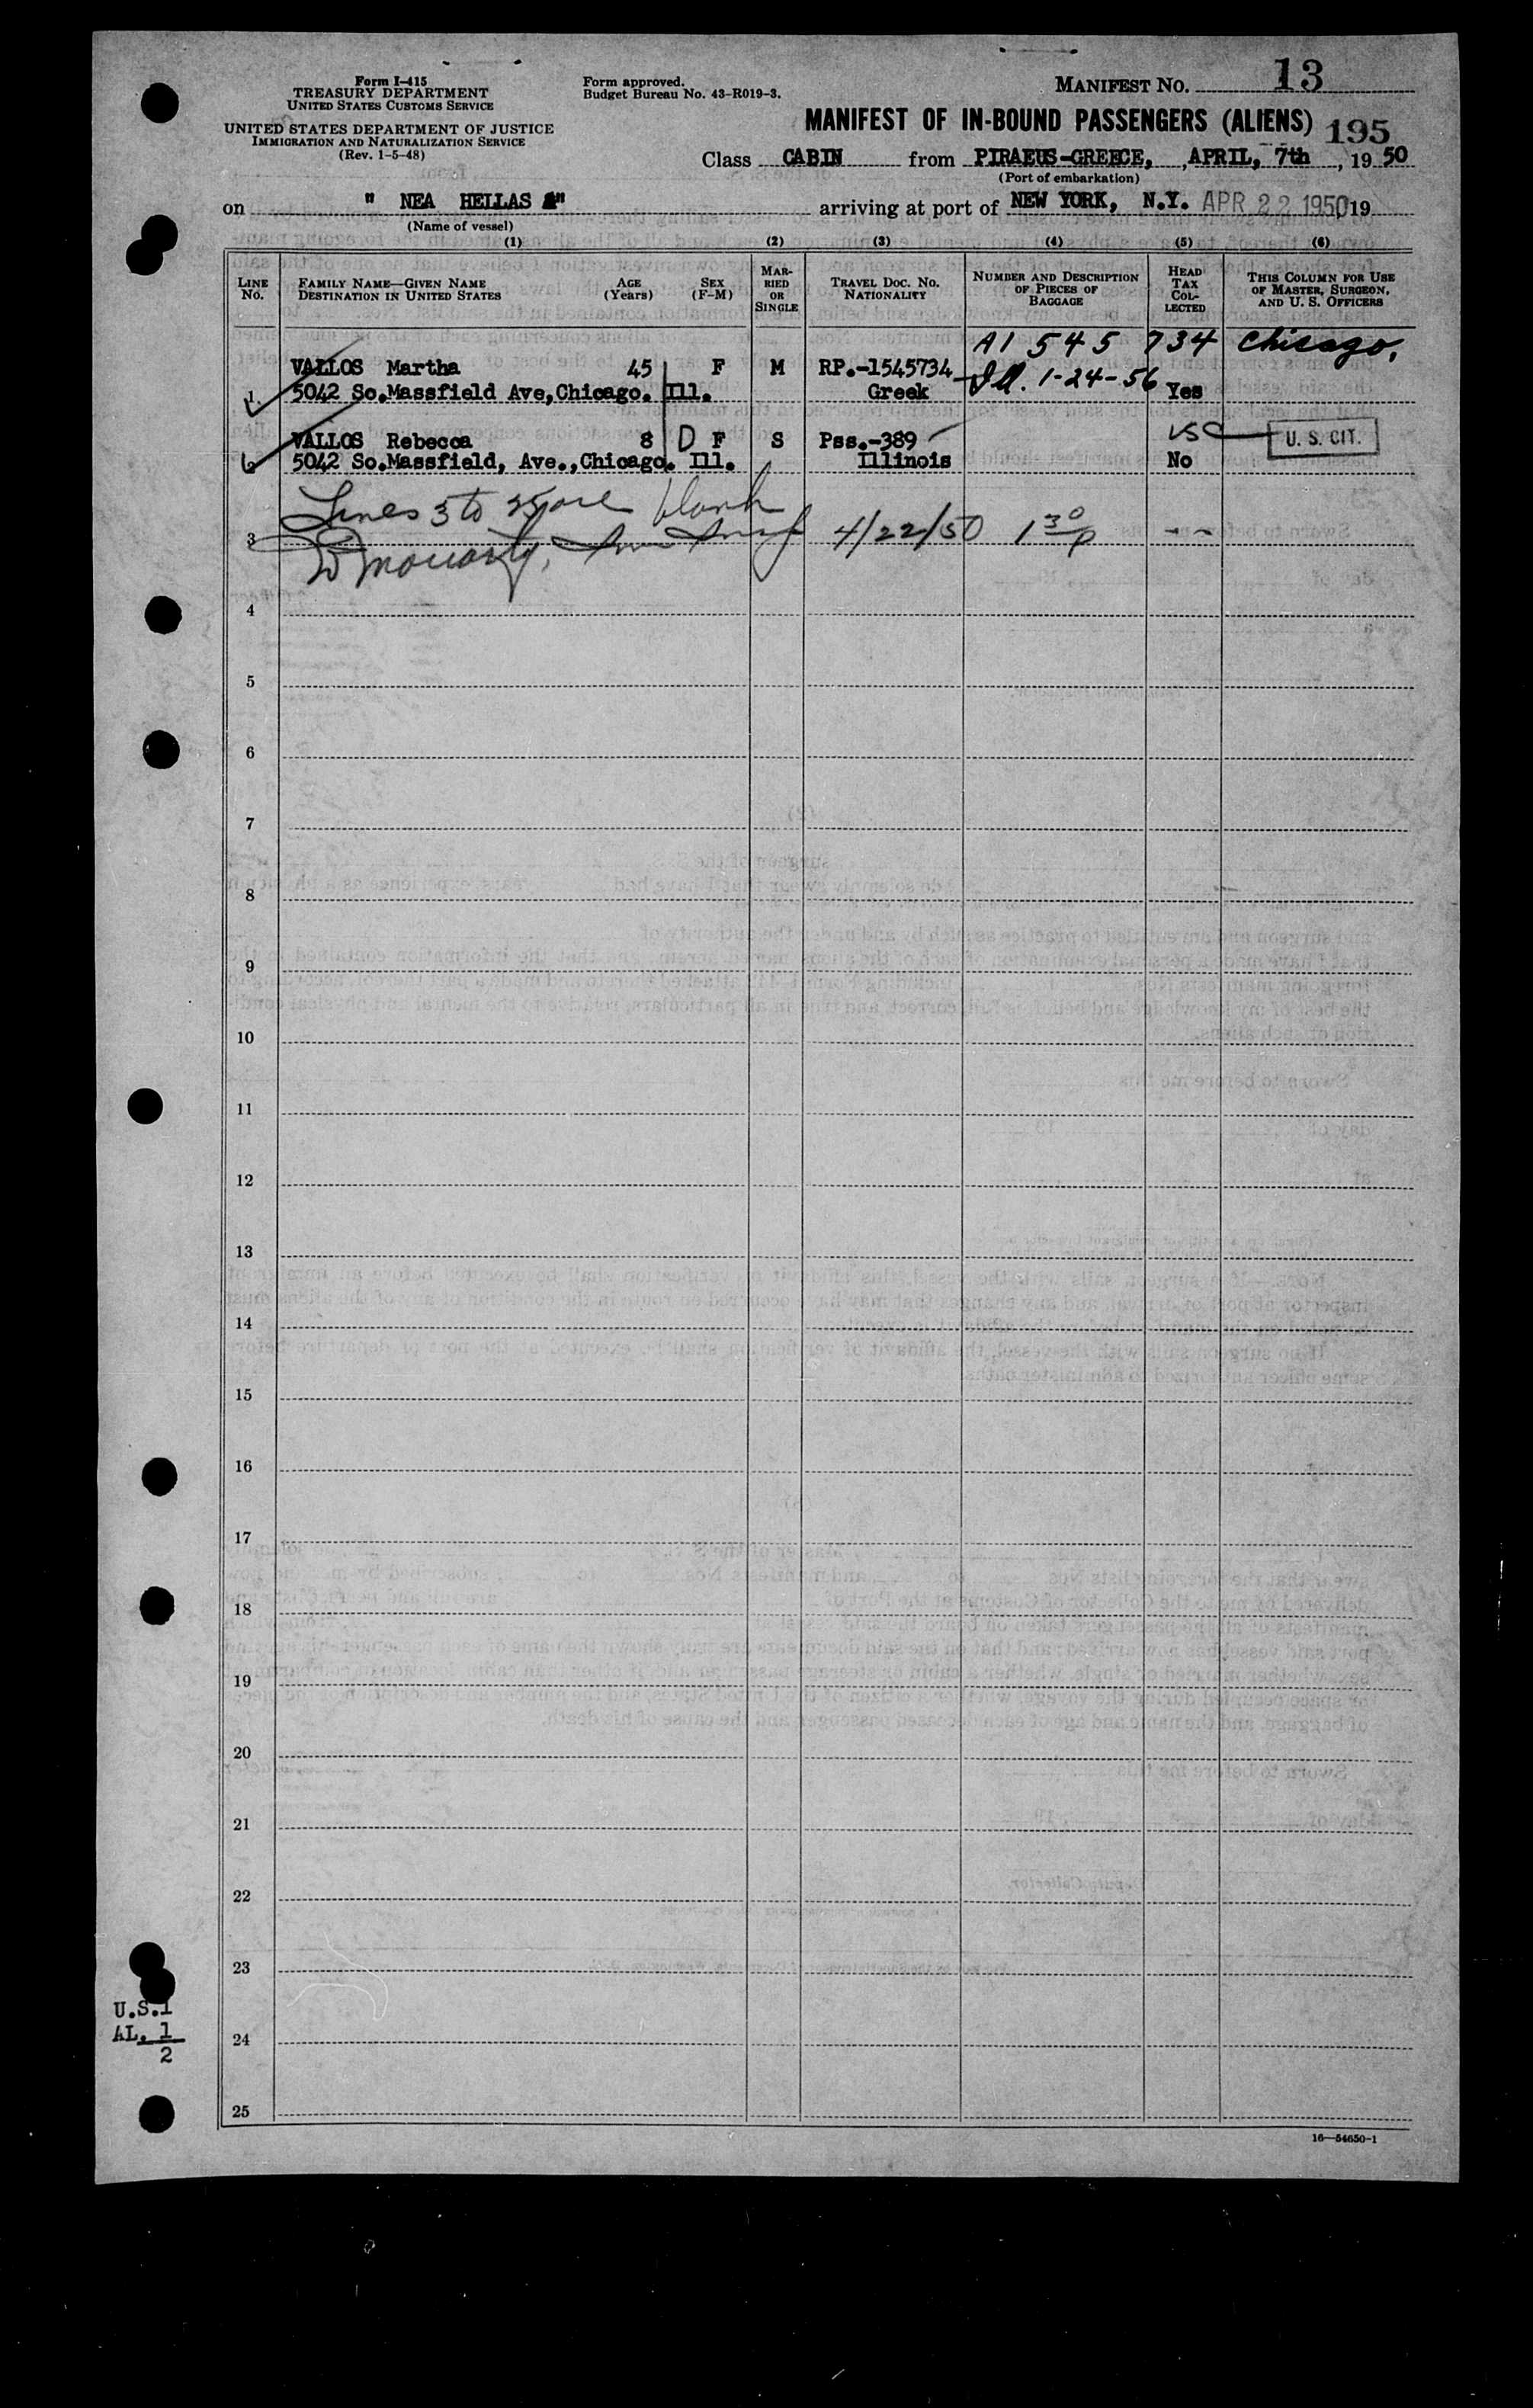 Form I-415
TREASURY DEPARTMENT
UNITED STATES CUSTOMS SERVICE
UNITED STATES DEPARTMENT OF JUSTICE
IMMIGRATION AND NATURALIZATION SERVICE
(Rev. 1-5-48)
Form approved.
Budget Bureau No. 43-R019-3.
MANIFEST NO. 13
MANIFEST OF IN-BOUND PASSENGERS (ALIENS) 195
Class CABIN from PIRAEUS-GREECE, , APRIL, 7th , 19 50
(Port of embarkation)
on " NEA HELLAS " arriving at port of NEW YORK, N.Y. APR 22 1950 19
(Name of vessel)
(1) (2) (3) (4) (5) (6)
LINE NO. FAMILY NAME—GIVEN NAME DESTINATION IN UNITED STATES AGE (Years) SEX (F-M) MARRIED OR SINGLE TRAVEL DOC. NO. NATIONALITY NUMBER AND DESCRIPTION OF PIECES OF BAGGAGE HEAD TAX COLLECTED THIS COLUMN FOR USE OF MASTER, SURGEON, AND U. S. OFFICERS
A1 545 734 Chicago,
VALLOS Martha 45 F M RP.-1545734 Ill. 1-24-56
1 5042 So.Massfield Ave,Chicago. Ill. Greek Yes
VALLOS Rebecca 8 D F S Pss.-389 USC U. S. CIT.
5042 So.Massfield, Ave.,Chicago. Ill. Illinois No
Lines 3 to 25 are blank
3 4/22/50 1 30 p - -
4
5
6
7
8
9
10
11
12
13
14
15
16
17
18
19
20
21
22
23
U.S.1
AL. 1
2
24
25
16—54650-1